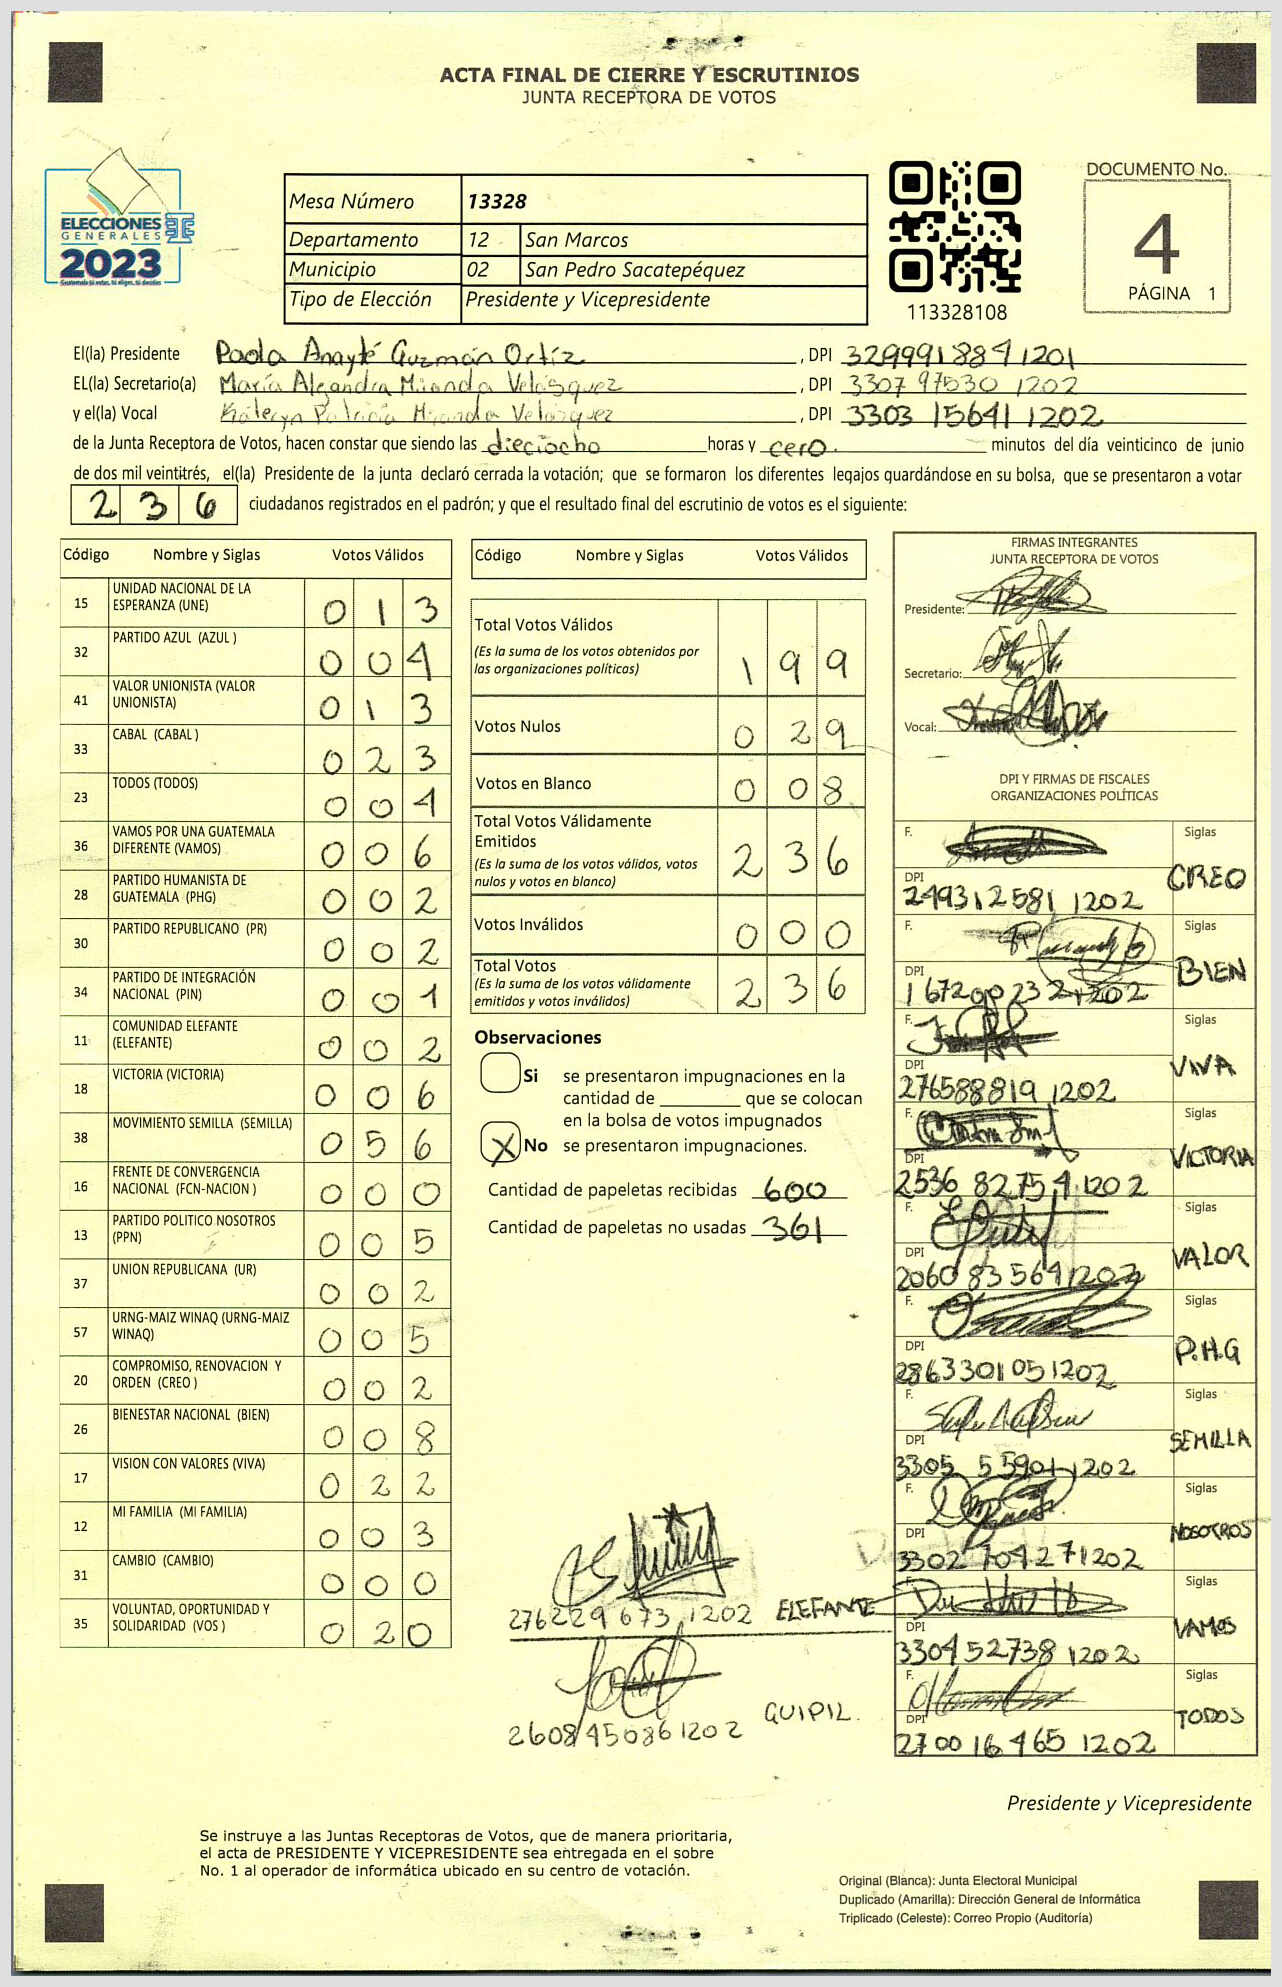 ACTA FINAL DE CIERRE Y ESCRUTINIOS
JUNTA RECEPTORA DE VOTOS
ELECCIONES
GENERALES
2023
Mesa Número 13328
Departamento 12 San Marcos
Municipio 02 San Pedro Sacatepéquez
Tipo de Elección Presidente y Vicepresidente
113328108
DOCUMENTO No.
4
PÁGINA 1
El(la) Presidente Paola Anayté Guzmán Ortíz, DPI 329991884 1201
EL(la) Secretario(a) María Alejandra Miranda Velásquez, DPI 3307 97530 1202
y el(la) Vocal Miranda Velásquez, DPI 3303 15641 1202
de la Junta Receptora de Votos, hacen constar que siendo las dieciocho horas y cero. minutos del día veinticinco de junio
de dos mil veintitrés, el(la) Presidente de la junta declaró cerrada la votación; que se formaron los diferentes legajos guardándose en su bolsa, que se presentaron a votar
2 3 6 ciudadanos registrados en el padrón; y que el resultado final del escrutinio de votos es el siguiente:
Código Nombre y Siglas Votos Válidos
15 UNIDAD NACIONAL DE LA ESPERANZA (UNE) 0 1 3
32 PARTIDO AZUL (AZUL ) 0 0 4
41 VALOR UNIONISTA (VALOR UNIONISTA) 0 1 3
33 CABAL (CABAL ) 0 2 3
23 TODOS (TODOS) 0 0 4
36 VAMOS POR UNA GUATEMALA DIFERENTE (VAMOS) 0 0 6
28 PARTIDO HUMANISTA DE GUATEMALA (PHG) 0 0 2
30 PARTIDO REPUBLICANO (PR) 0 0 2
34 PARTIDO DE INTEGRACIÓN NACIONAL (PIN) 0 0 1
11 COMUNIDAD ELEFANTE (ELEFANTE) 0 0 2
18 VICTORIA (VICTORIA) 0 0 6
38 MOVIMIENTO SEMILLA (SEMILLA) 0 5 6
16 FRENTE DE CONVERGENCIA NACIONAL (FCN-NACION ) 0 0 0
13 PARTIDO POLITICO NOSOTROS (PPN) 0 0 5
37 UNION REPUBLICANA (UR) 0 0 2
57 URNG-MAIZ WINAQ (URNG-MAIZ WINAQ) 0 0 5
20 COMPROMISO, RENOVACION Y ORDEN (CREO ) 0 0 2
26 BIENESTAR NACIONAL (BIEN) 0 0 8
17 VISION CON VALORES (VIVA) 0 2 2
12 MI FAMILIA (MI FAMILIA) 0 0 3
31 CAMBIO (CAMBIO) 0 0 0
35 VOLUNTAD, OPORTUNIDAD Y SOLIDARIDAD (VOS ) 0 2 0
Código Nombre y Siglas Votos Válidos
Total Votos Válidos 1 9 9
(Es la suma de los votos obtenidos por
las organizaciones políticas)
Votos Nulos 0 2 9
Votos en Blanco 0 0 8
Total Votos Válidamente
Emitidos 2 3 6
(Es la suma de los votos válidos, votos
nulos y votos en blanco)
Votos Inválidos 0 0 0
Total Votos 2 3 6
(Es la suma de los votos válidamente
emitidos y votos inválidos)
Observaciones
Si se presentaron impugnaciones en la
cantidad de ________ que se colocan
en la bolsa de votos impugnados
X No se presentaron impugnaciones.
Cantidad de papeletas recibidas 600
Cantidad de papeletas no usadas 361
276229 673 1202 ELEFANTE
2608450861202 GUIPIL.
FIRMAS INTEGRANTES
JUNTA RECEPTORA DE VOTOS
Presidente:
Secretario:
Vocal:
DPI Y FIRMAS DE FISCALES
ORGANIZACIONES POLÍTICAS
F. Siglas
DPI CREO
249312581 1202
F. Siglas
DPI BIEN
F. Siglas
DPI VIVA
276588819 1202
F. Siglas
DPI VICTORIA
2536 82754 1202
F. Siglas
DPI VALOR
2060 83564 1202
F. Siglas
DPI P.H.G
2863301051202
F. Siglas
DPI SEMILLA
3305 55901 1202
F. Siglas
DPI NOSOTROS
3302 704271202
F. Siglas
VAMOS
DPI
330452738 1202
F. Siglas
DPI TODOS
2700 16465 1202
Presidente y Vicepresidente
Se instruye a las Juntas Receptoras de Votos, que de manera prioritaria,
el acta de PRESIDENTE Y VICEPRESIDENTE sea entregada en el sobre
No. 1 al operador de informática ubicado en su centro de votación.
Original (Blanca): Junta Electoral Municipal
Duplicado (Amarilla): Dirección General de Informática
Triplicado (Celeste): Correo Propio (Auditoría)